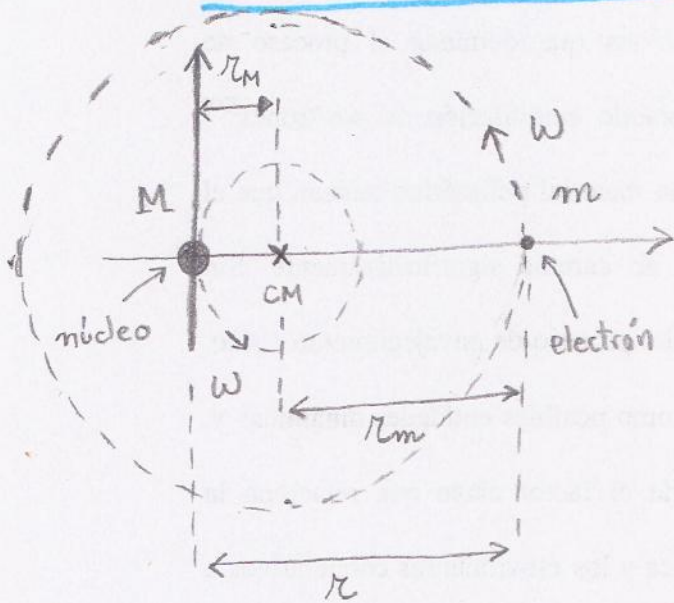 r_M
W
M
m
CM
núcleo
electrón
W
r_m
r